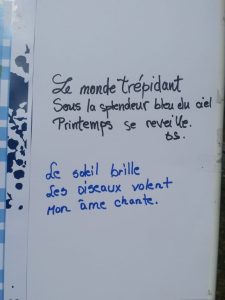 Le monde trépidant
Sous la splendeur bleu du ciel
Printemps se reveille.
SS.
Le soleil brille
Les oiseaux volent
Mon âme chante.